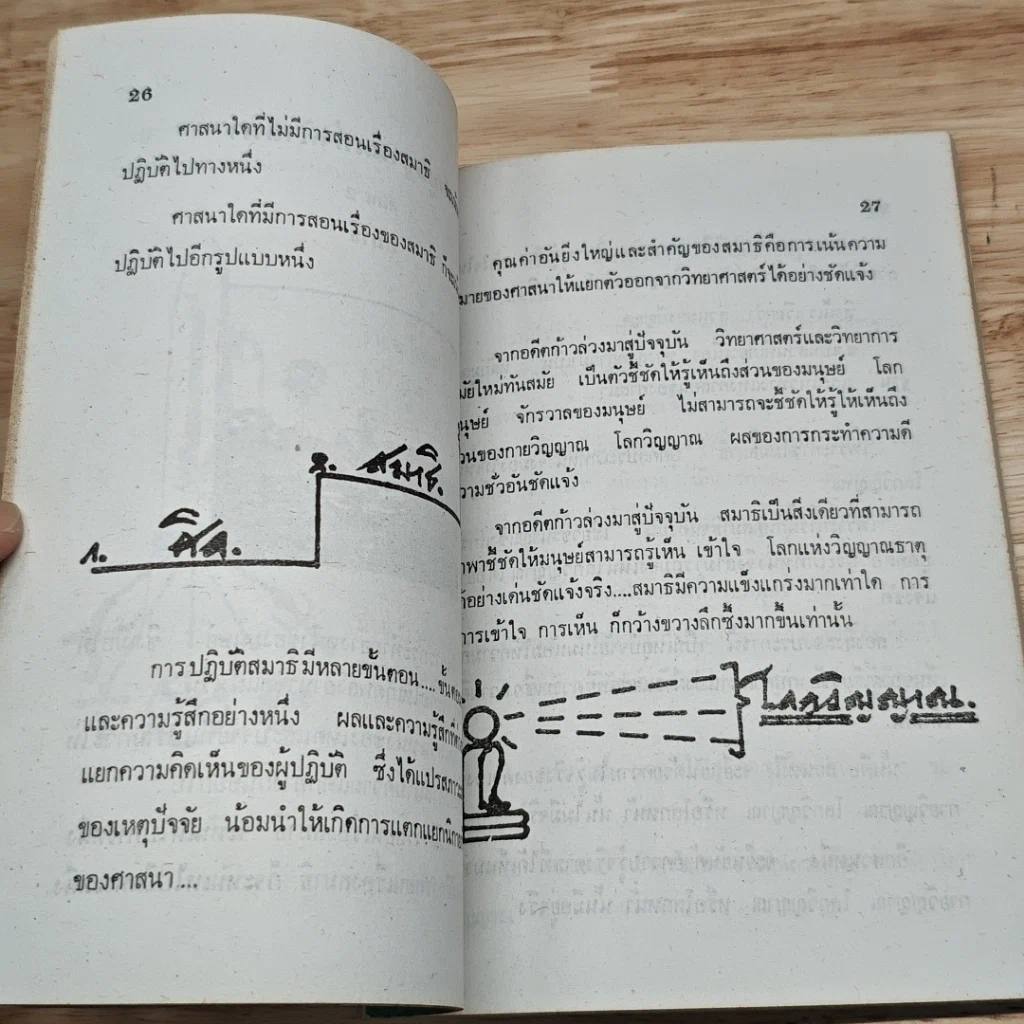 26
ศาสนาใดที่ไม่มีการสอนเรื่องสมาธิ
ปฏิบัติไปทางหนึ่ง
ศาสนาใดที่มีการสอนเรื่องของสมาธิ
ปฏิบัติไปอีกรูปแบบหนึ่ง
2. สมาธิ.
1. ศีล.
การปฏิบัติสมาธิมีหลายขั้นตอน....
และความรู้สึกอย่างหนึ่ง ผลและความรู้สึก
แยกความคิดเห็นของผู้ปฏิบัติ ซึ่งได้แปร
ของเหตุปัจจัย น้อมนำให้เกิดการแตกแยก
ของศาสนา...
27
คุณค่าอันยิ่งใหญ่และสำคัญของสมาธิคือการเน้นความ
มายของศาสนาให้แยกตัวออกจากวิทยาศาสตร์ได้อย่างชัดแจ้ง
จากอดีตก้าวล่วงมาสู่ปัจจุบัน วิทยาศาสตร์และวิทยาการ
มัยใหม่ทันสมัย เป็นตัวชี้ชัดให้รู้เห็นถึงส่วนของมนุษย์ โลก
นุษย์ จักรวาลของมนุษย์ ไม่สามารถจะชี้ชัดให้รู้ให้เห็นถึง
วนของกายวิญญาณ โลกวิญญาณ ผลของการกระทำความดี
วามชั่วอันชัดแจ้ง
จากอดีตก้าวล่วงมาสู่ปัจจุบัน สมาธิเป็นสิ่งเดียวที่สามารถ
าพาชี้ชัดให้มนุษย์สามารถรู้เห็น เข้าใจ โลกแห่งวิญญาณธาตุ
ด้อย่างเด่นชัดแจ้งจริง....สมาธิมีความแข็งแกร่งมากเท่าใด การ
การเข้าใจ การเห็น ก็กว้างขวางลึกซึ้งมากขึ้นเท่านั้น
โลกวิญญาณ.